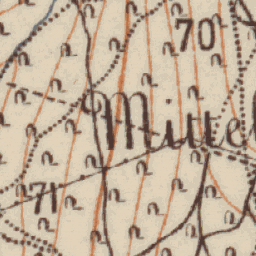 70
Mittel
71